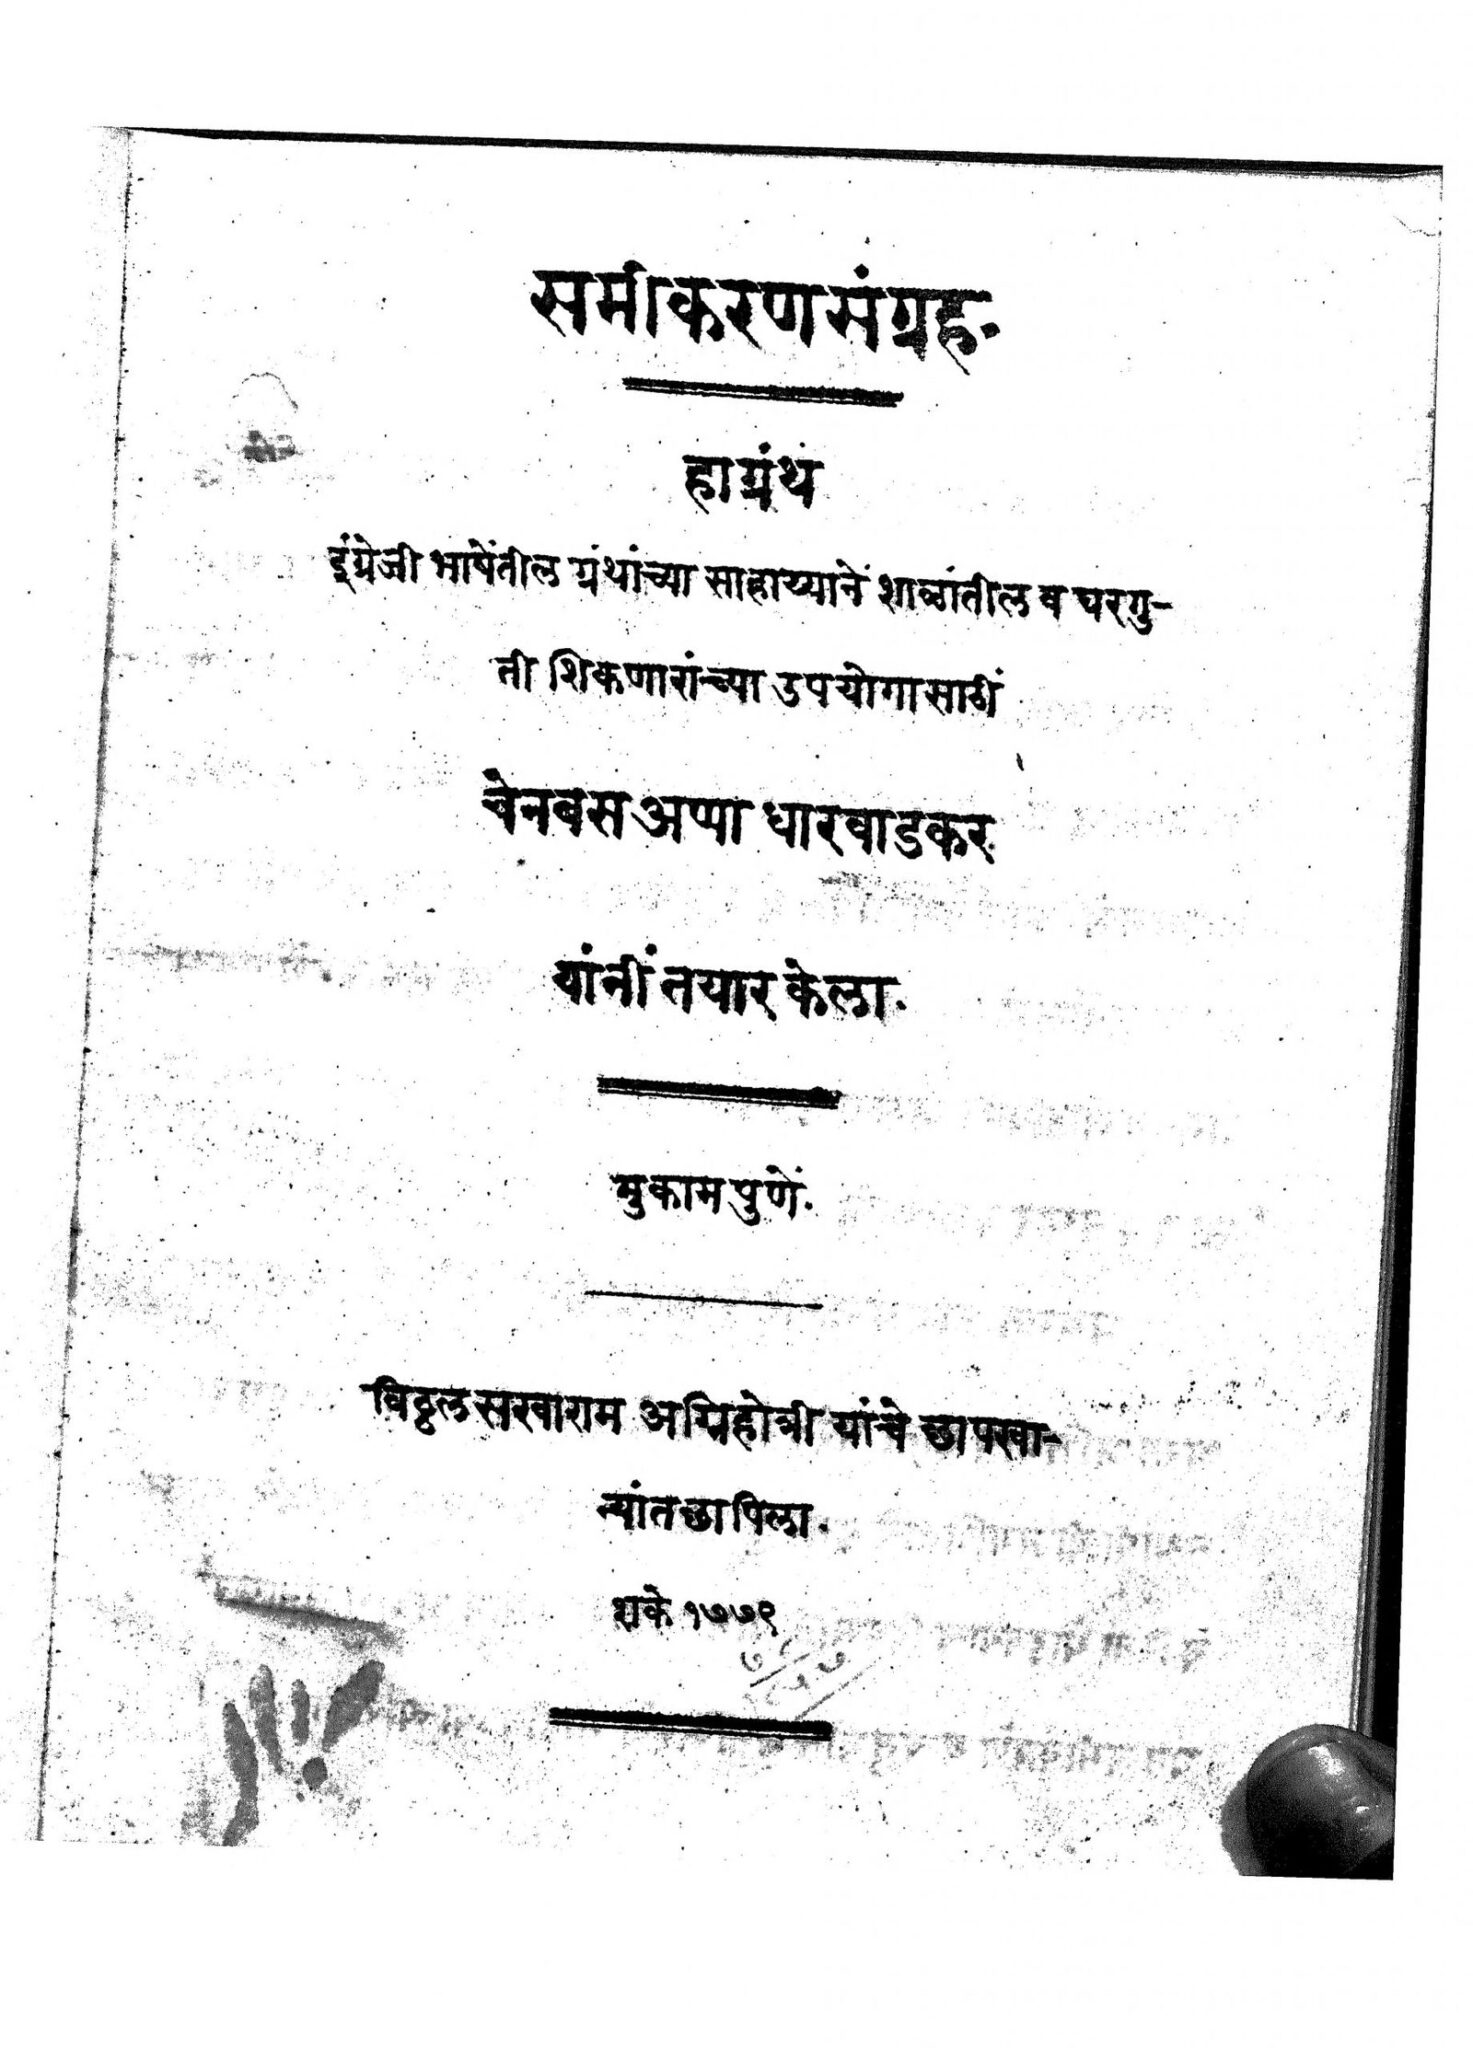 समीकरणसंग्रह.
हा ग्रंथ
इंग्रेजी भाषेंतील ग्रंथांच्या साहाय्यानें शाळांतील व घरगु-
ती शिकणारांच्या उपयोगासाठीं
चेनबसअप्पा धारवाडकर
यांनीं तयार केला.
मुकाम पुणें.
विठ्ठल सखाराम अग्निहोत्री यांचे छापखा-
न्यांत छापिला.
शके १७७९